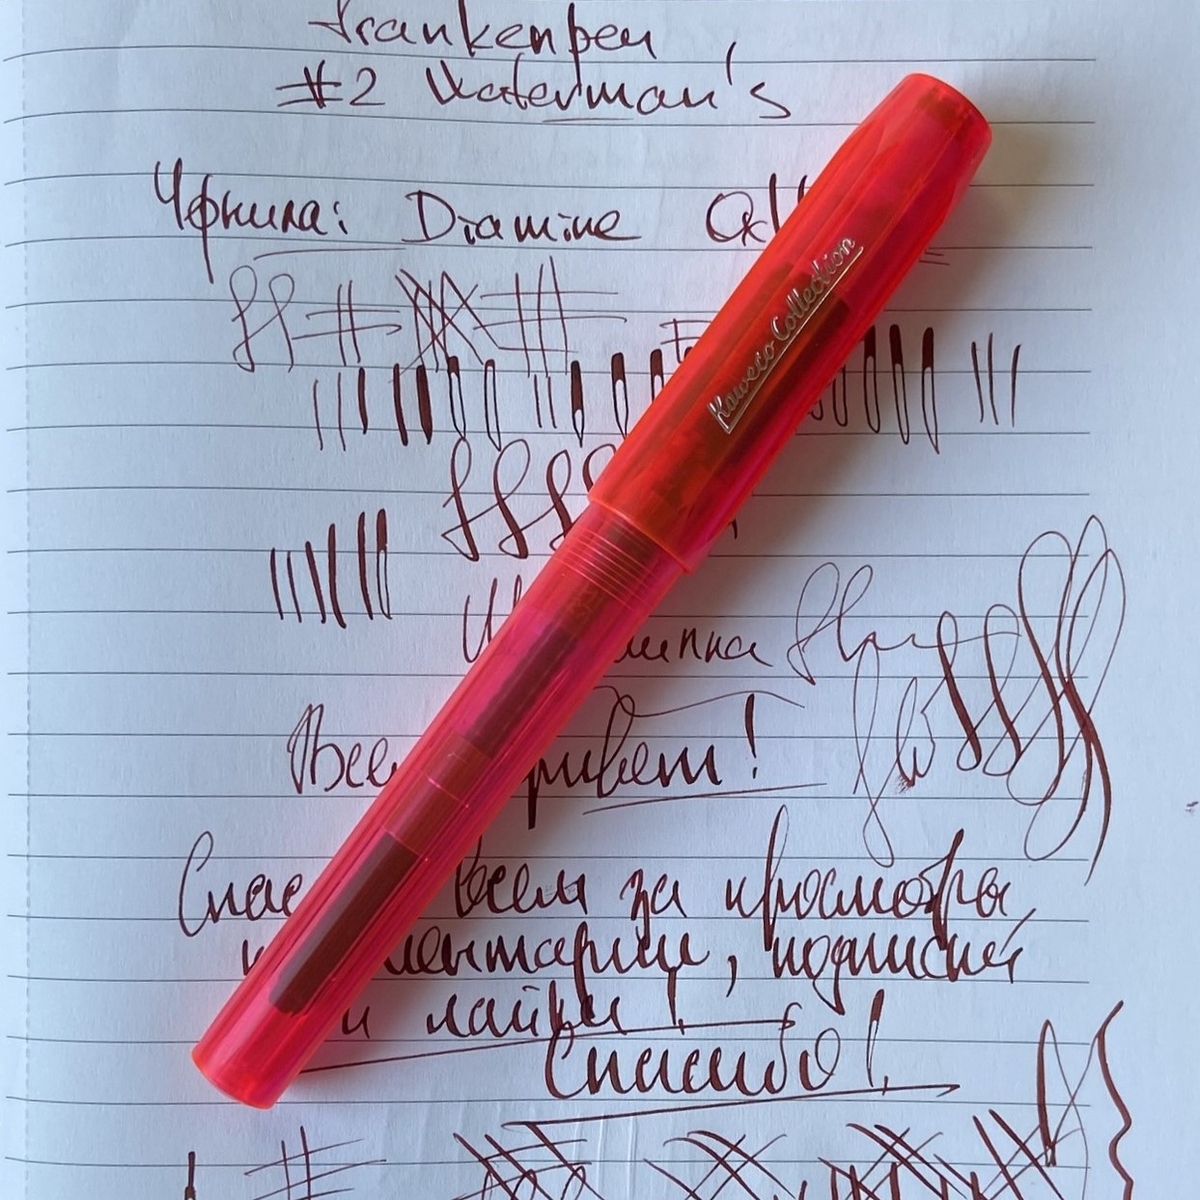 Frankenpen
#2 Waterman's
Чернила: Diamine
Kaweco Collection
Всем привет!
Спасибо всем за просмотры,
комментарии, подписки
и лайки!
Спасибо!